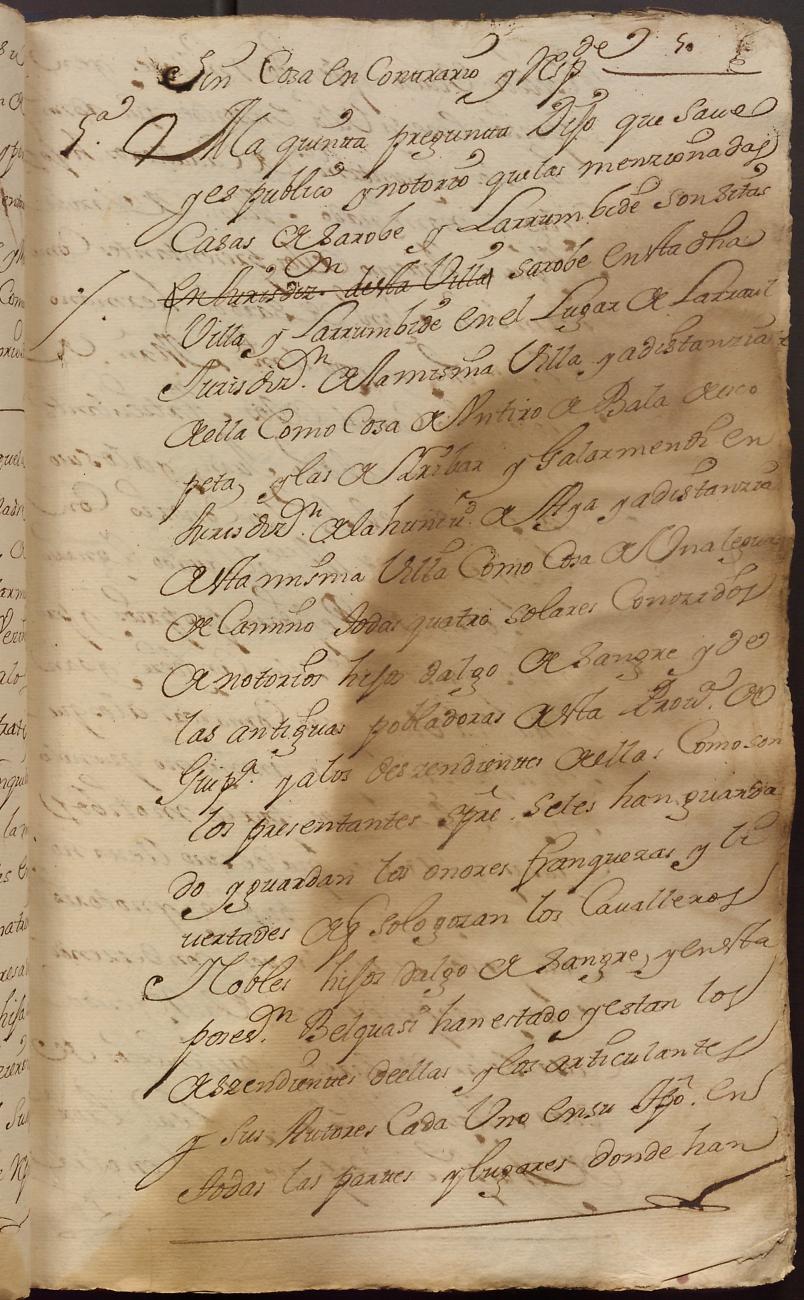 sin Cosa en Contrario y Resp.de 50
5.a A la quinta pregunta Dijo que save
y es publico y notorio que las menzionadas
Casas de Sarobe y Larrumbide son sitas
en Jurisdiz.on desta Villa Sarobe en esta dha
Villa y Larrumbide en el Lugar de Larraul
Jurisdiz.n de la misma Villa y a distanzia
della Como Cosa de Un tiro de Bala de esco
peta, y las de Arribar y Galarmendi en
Jurisdiz.n de la huniu.d de Aya y a distanzia
de esta misma Villa Como Cosa de Una legua
de Camino todas quatro solares Conozidos
de notorios hijos dalgo de sangre y de
las antiguas pobladoras de esta Prov.a de
Guip.a y a los deszendientes dellas Como son
los presentantes spre. se les han guarda
do y guardan los onores franquezas y li
vertades de q solo gozan los Cavalleros
Nobles hijos dalgo de Sangre, y en esta
poses.n Velquasi han estado y estan los
deszendientes de ellas y los articulantes
y sus Autores Cada Uno en su tpo. en
todas las partes y lugares donde han